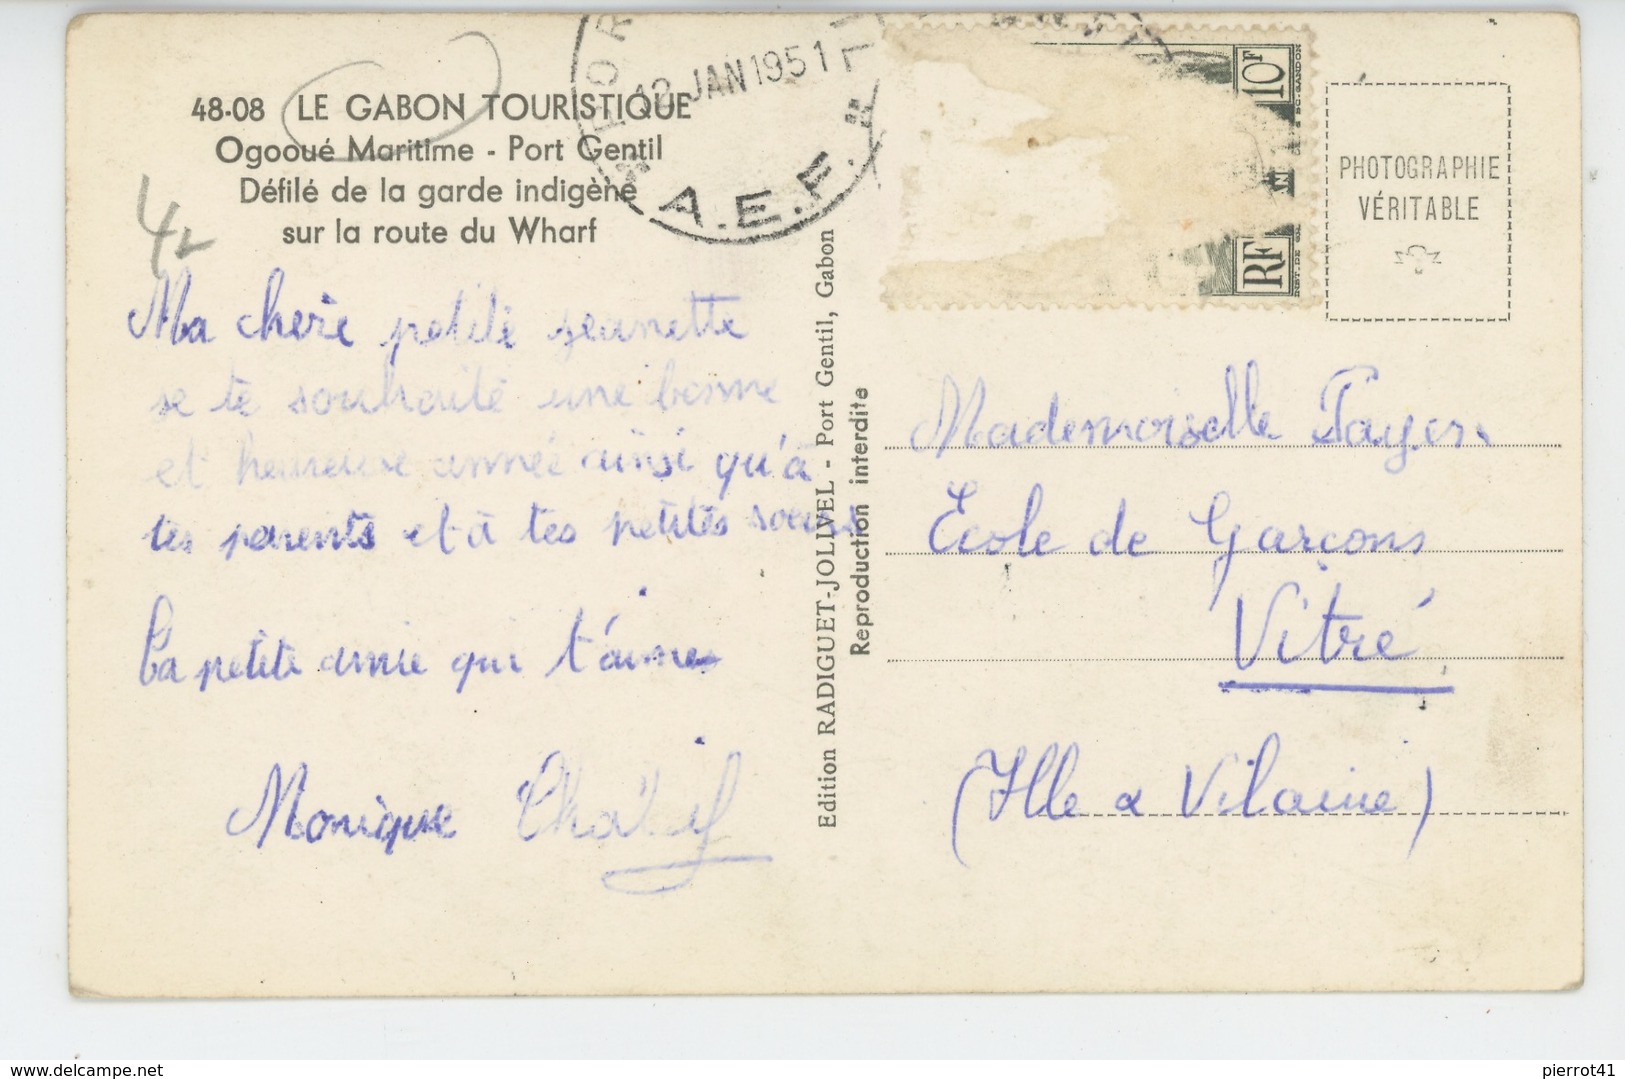 48-08 LE GABON TOURISTIQUE
Ogooué Maritime - Port Gentil
Défilé de la garde indigène
sur la route du Wharf
12 JAN 1951
A.E.F.
10F
RF
PHOTOGRAPHIE
VÉRITABLE
42
Ma cherie petite jeanette
je te souhaite une bonne
et heureuse année ainsi qu'à
tes parents et à tes petites soeurs
La petite amie qui t'aime
Monique
Edition RADIGUET-JOLIVEL - Port Gentil, Gabon
Reproduction interdite
Mademoiselle Payer
École de Garçons
Vitré
(Ille & Vilaine)
www.delcampe.net
pierrot41